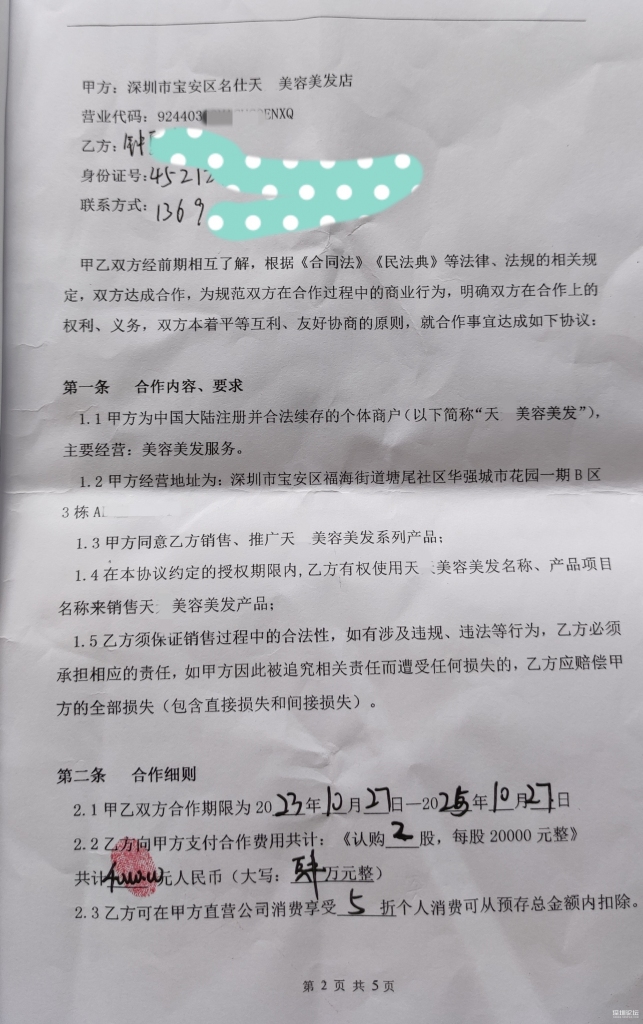 甲方：深圳市宝安区名仕天 美容美发店
营业代码：924403 ENXQ
乙方：钟
身份证号：45212
联系方式：1369
甲乙双方经前期相互了解，根据《合同法》《民法典》等法律、法规的相关规
定，双方达成合作，为规范双方在合作过程中的商业行为，明确双方在合作上的
权利、义务，双方本着平等互利、友好协商的原则，就合作事宜达成如下协议：
第一条 合作内容、要求
1.1 甲方为中国大陆注册并合法续存的个体商户（以下简称“天 美容美发”），
主要经营：美容美发服务。
1.2 甲方经营地址为：深圳市宝安区福海街道塘尾社区华强城市花园一期 B 区
3 栋 A
1.3 甲方同意乙方销售、推广天 美容美发系列产品；
1.4 在本协议约定的授权期限内,乙方有权使用天 美容美发名称、产品项目
名称来销售天 美容美发产品；
1.5 乙方须保证销售过程中的合法性，如有涉及违规、违法等行为，乙方必须
承担相应的责任，如甲方因此被追究相关责任而遭受任何损失的，乙方应赔偿甲
方的全部损失（包含直接损失和间接损失）。
第二条 合作细则
2.1 甲乙双方合作期限为 2023年10月27日—2025年10月27日
2.2 乙方向甲方支付合作费用共计：《认购2股，每股 20000 元整》
共计40000元人民币（大写：肆万元整）
2.3 乙方可在甲方直营公司消费享受5折个人消费可从预存总金额内扣除。
第 2 页 共 5 页
深圳论坛